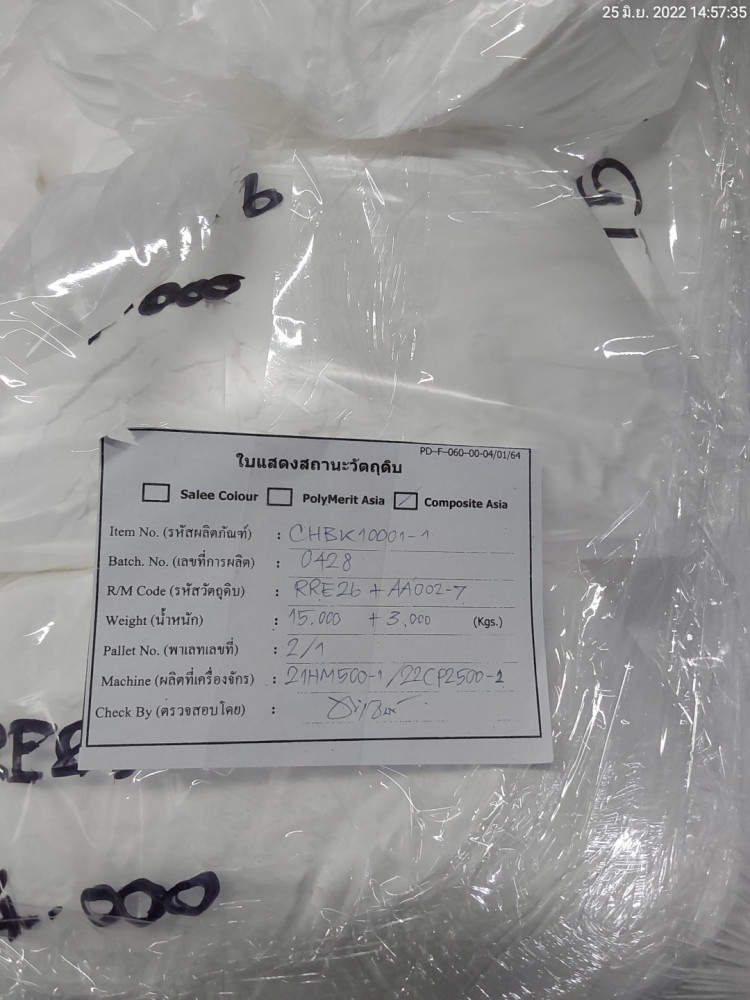 25 มิ.ย. 2022 14:57:35
6
.000
PD-F-060-00-04/01/64
ใบแสดงสถานะวัตถุดิบ
Salee Colour PolyMerit Asia Composite Asia
Item No. (รหัสผลิตภัณฑ์) : CHBK10001-1
Batch. No. (เลขที่การผลิต) : 0428
R/M Code (รหัสวัตถุดิบ) : RRE26 + AA002-7
Weight (น้ำหนัก) : 15.000 + 3.000 (Kgs.)
Pallet No. (พาเลทเลขที่) : 2/1
Machine (ผลิตที่เครื่องจักร) : 21HM500-1/22CP2500-1
Check By (ตรวจสอบโดย) :
.000